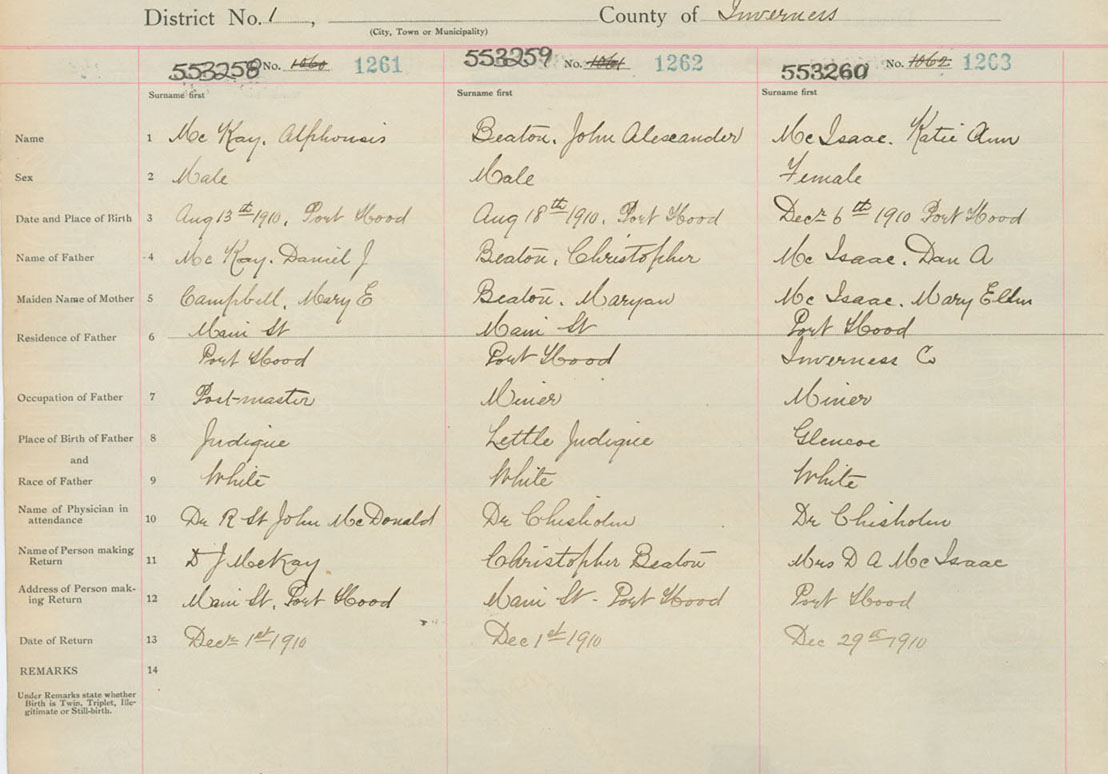 District No. 1, County of Inverness
(City, Town or Municipality)
553258 No. 1060 1261 553259 No. 1061 1262 553260 No. 1062 1263
Surname first Surname first Surname first
Name 1 Mc Kay. Alphonsis Beaton. John Alexander Mc Isaac. Katie Ann
Sex 2 Male Male Female
Date and Place of Birth 3 Aug 13th 1910, Port Hood Aug 18th 1910. Port Hood Decr 6th 1910 Port Hood
Name of Father 4 Mc Kay. Daniel J Beaton, Christopher Mc Isaac. Dan A
Maiden Name of Mother 5 Campbell, Mary E Beaton. Maryan Mc Isaac. Mary Ellen
Residence of Father 6 Main St Main St Port Hood
Port Hood Port Hood Inverness Co
Occupation of Father 7 Post-master Miner Miner
Place of Birth of Father 8 Judique Little Judique Glencoe
and
Race of Father 9 White White White
Name of Physician in attendance 10 Dr R St John McDonald Dr Chisholm Dr Chisholm
Name of Person making Return 11 D J McKay Christopher Beaton Mrs D A Mc Isaac
Address of Person mak-ing Return 12 Main St, Port Hood Main St - Port Hood Port Hood
Date of Return 13 Decr 1st 1910 Dec 1st 1910 Dec 29st 1910
REMARKS 14
Under Remarks state whether
Birth is Twin, Triplet, Ille-
gitimate or Still-birth.